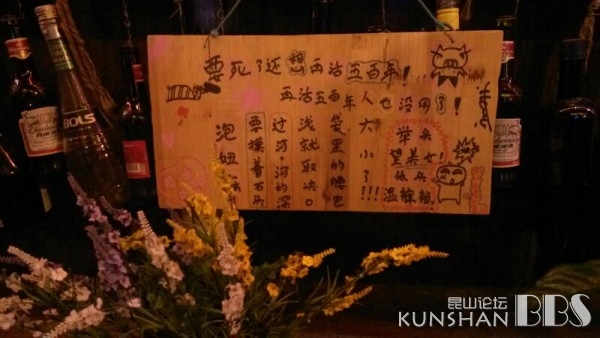 要死了还想再活五百年!
再活五百年人也没用了!
泡妞
要摸着石头
过河,河的深
浅就取决。
袋里的腰包
大小了!!!
举头
望美女!
低头
湿裤裆
BOLS
昆山论坛
KUNSHAN BBS